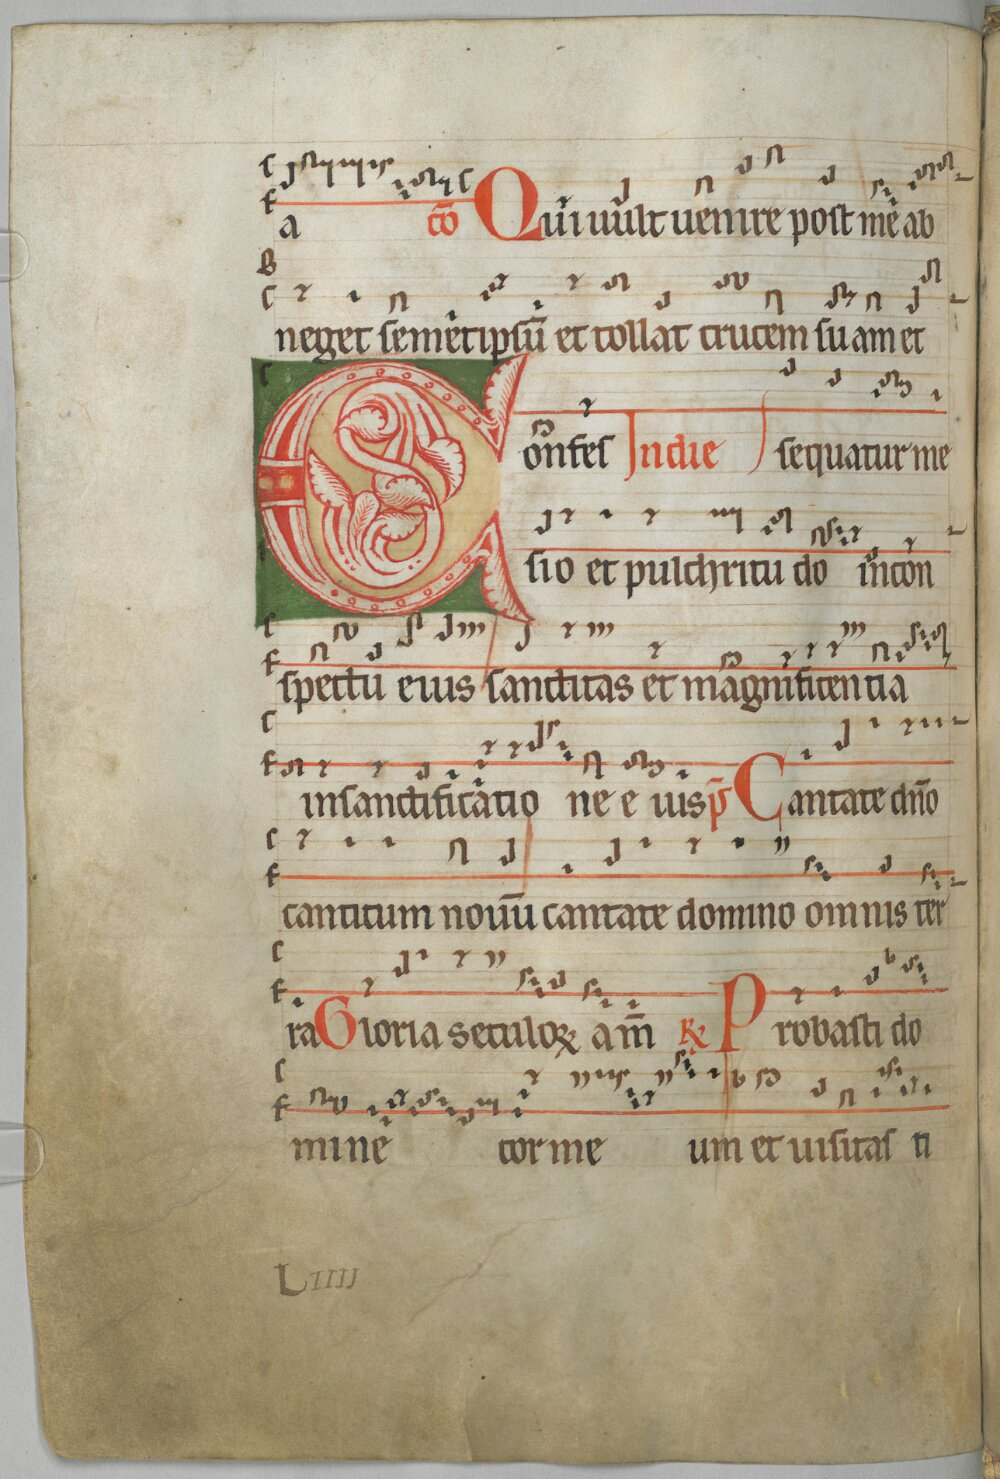 a cō Qui uult uenire post me ab
neget semetipsū et tollat crucem suam et
Confes In die sequatur me
sio et pulchritudo in con
spectu eius sanctitas et magnificentia
in sanctificatio ne e ius ps̄ Cantate dn̄o
canticum nouū cantate domino omnis ter
ra Gloria seculoꝝ am̄ ꝶ Probasti do
mine cor me um et uisitas ti
LIIII